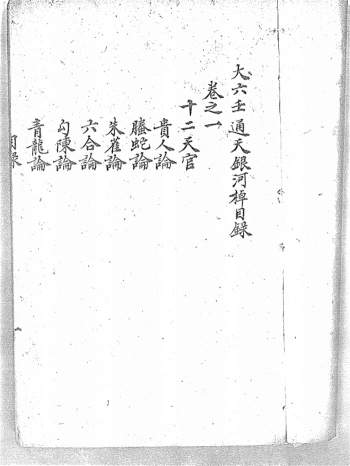 大六壬通天銀河棹目錄
卷之一
十二天官
貴人論
螣蛇論
朱雀論
六合論
勾陳論
青龍論
目錄